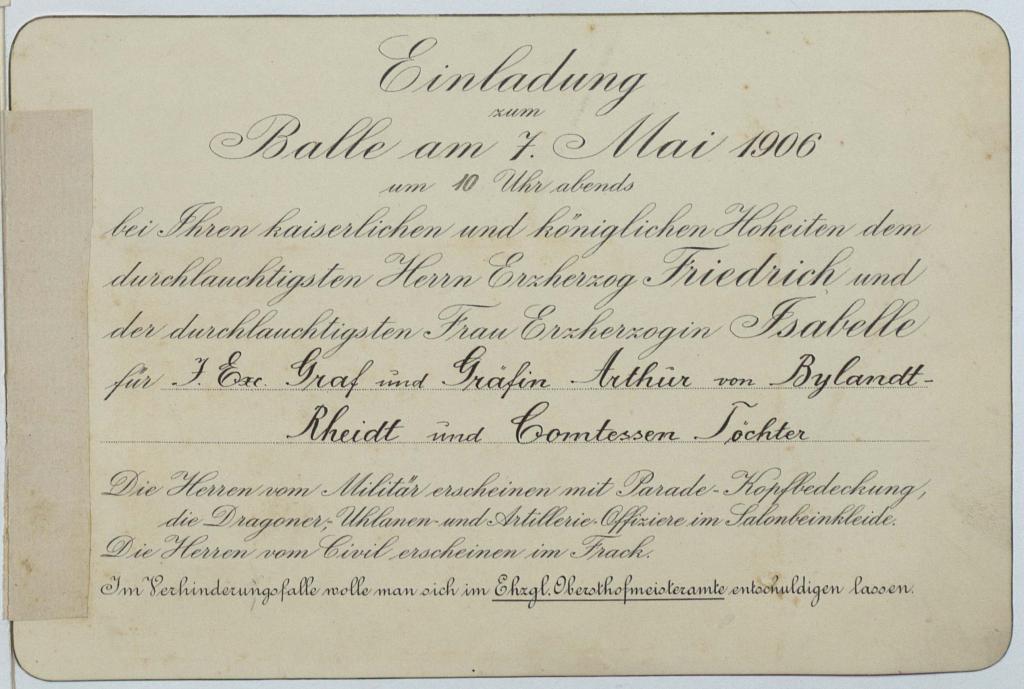 Einladung
zum
Balle am 7. Mai 1906
um 10 Uhr abends
bei Ihren kaiserlichen und königlichen Hoheiten dem
durchlauchtigsten Herrn Erzherzog Friedrich und
der durchlauchtigsten Frau Erzherzogin Isabelle
für I. Exc. Graf und Gräfin Arthur von Bylandt-
Rheidt und Comtessen Töchter
Die Herren vom Militär erscheinen mit Parade-Kopfbedeckung,
die Dragoner-, Uhlanen- und Artillerie-Offiziere im Salonbeinkleide.
Die Herren vom Civil erscheinen im Frack.
Im Verhinderungsfalle wolle man sich im Ehzgl. Obersthofmeisteramte entschuldigen lassen.